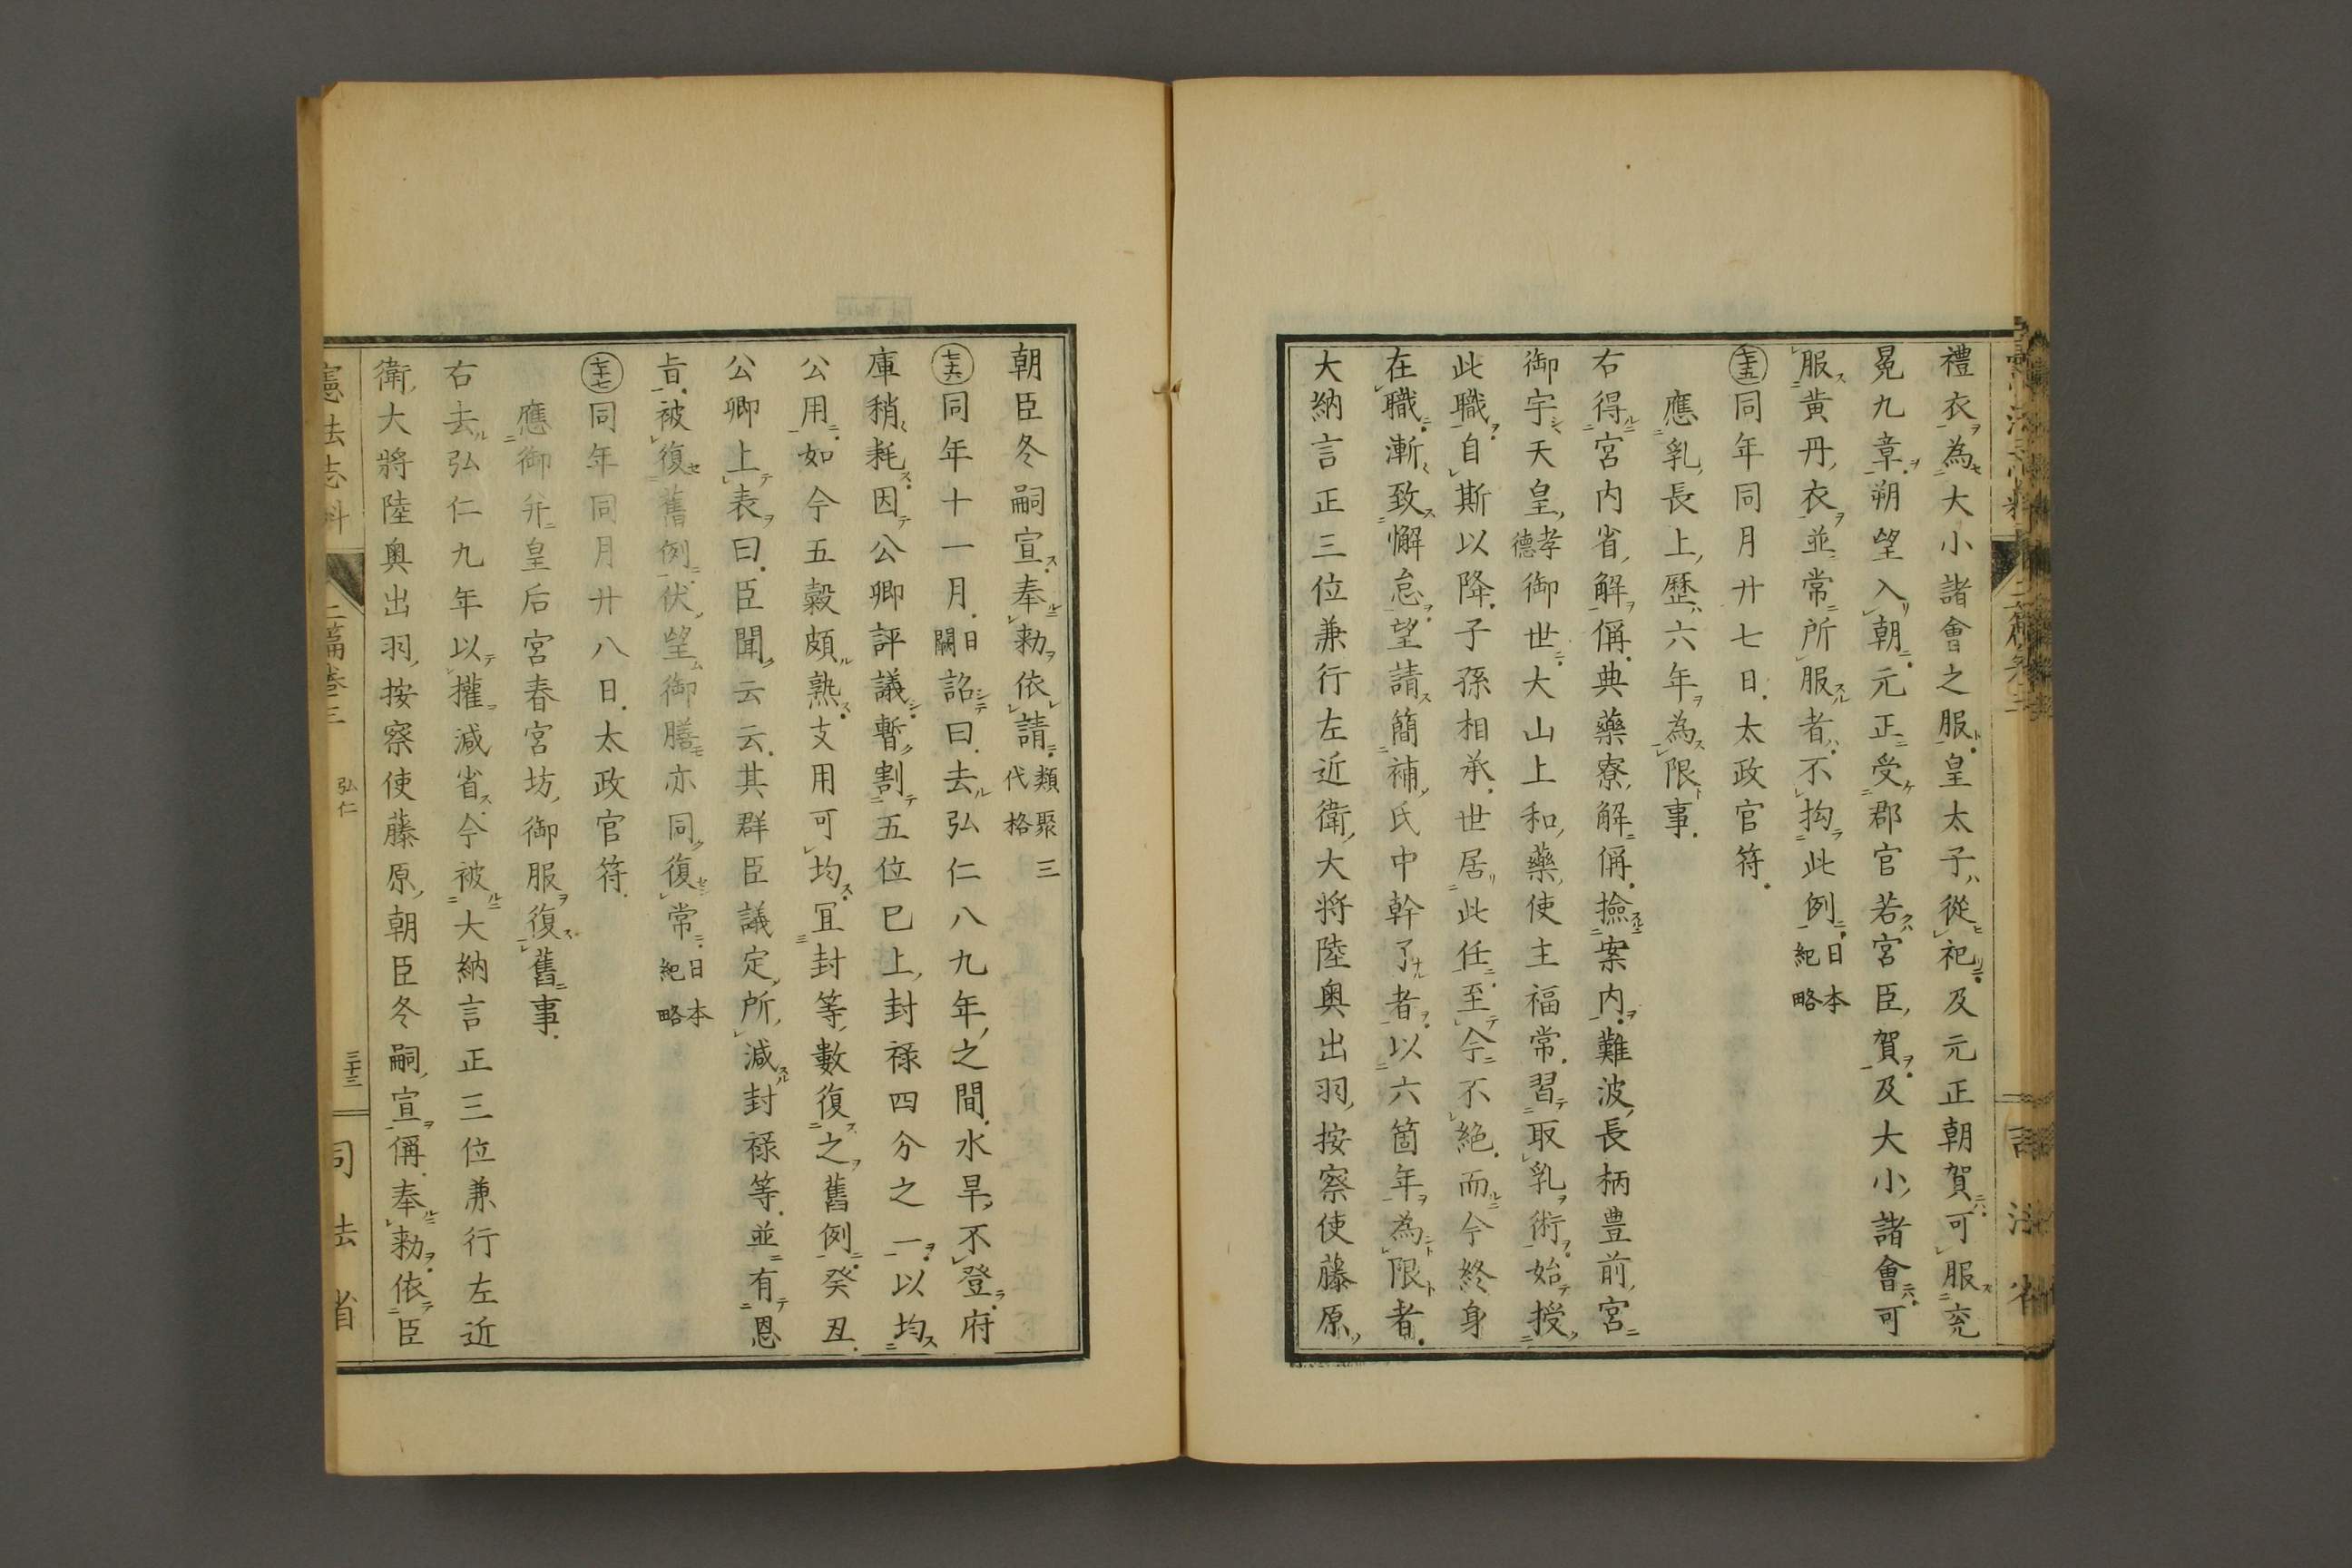 禮衣為大小諸會之服皇太子從祀及元正朝賀可服衮
冕九章朔望入朝元正受郡官若宮臣賀及大小諸會可
服黄丹衣並常所服者不拘此例日本紀略
七十五同年同月廿七日太政官符
應乳長上歷六年為限事
右得宮内省解偁典藥寮解偁撿案内難波長柄豊前宮
御宇天皇孝德御世大山上和藥使主福常習取乳術始授
此職自斯以降子孫相承世居此任至今不絶而今終身
在職漸致懈怠望請簡補氏中幹了者以六箇年為限者
大納言正三位兼行左近衛大将陸奥出羽按察使藤原
朝臣冬嗣宣奉勅依請類聚三代格
七十六同年十一月日闕詔曰去弘仁八九年之間水旱不登府
庫稍耗因公卿評議暫割五位已上封禄四分之一以均
公用如今五穀頗熟支用可均冝封等數復之舊例癸丑
公卿上表曰臣聞云云其群臣議定所減封禄等並有恩
旨被復舊例伏望御膳亦同復常日本紀略
七十七同年同月廿八日太政官符
應御并皇后宮春宮坊御服復舊事
右去弘仁九年以權減省今被大納言正三位兼行左近
衛大將陸奥出羽按察使藤原朝臣冬嗣宣偁奉勅依臣
憲法志料 二篇卷三 弘仁 三十三 司法省